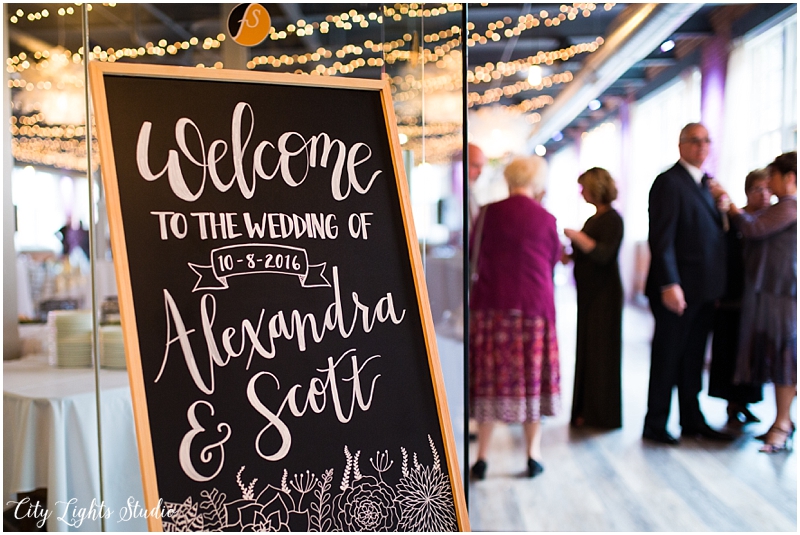 AS
Welcome
TO THE WEDDING OF
10-8-2016
Alexandra
& Scott
City Lights Studio